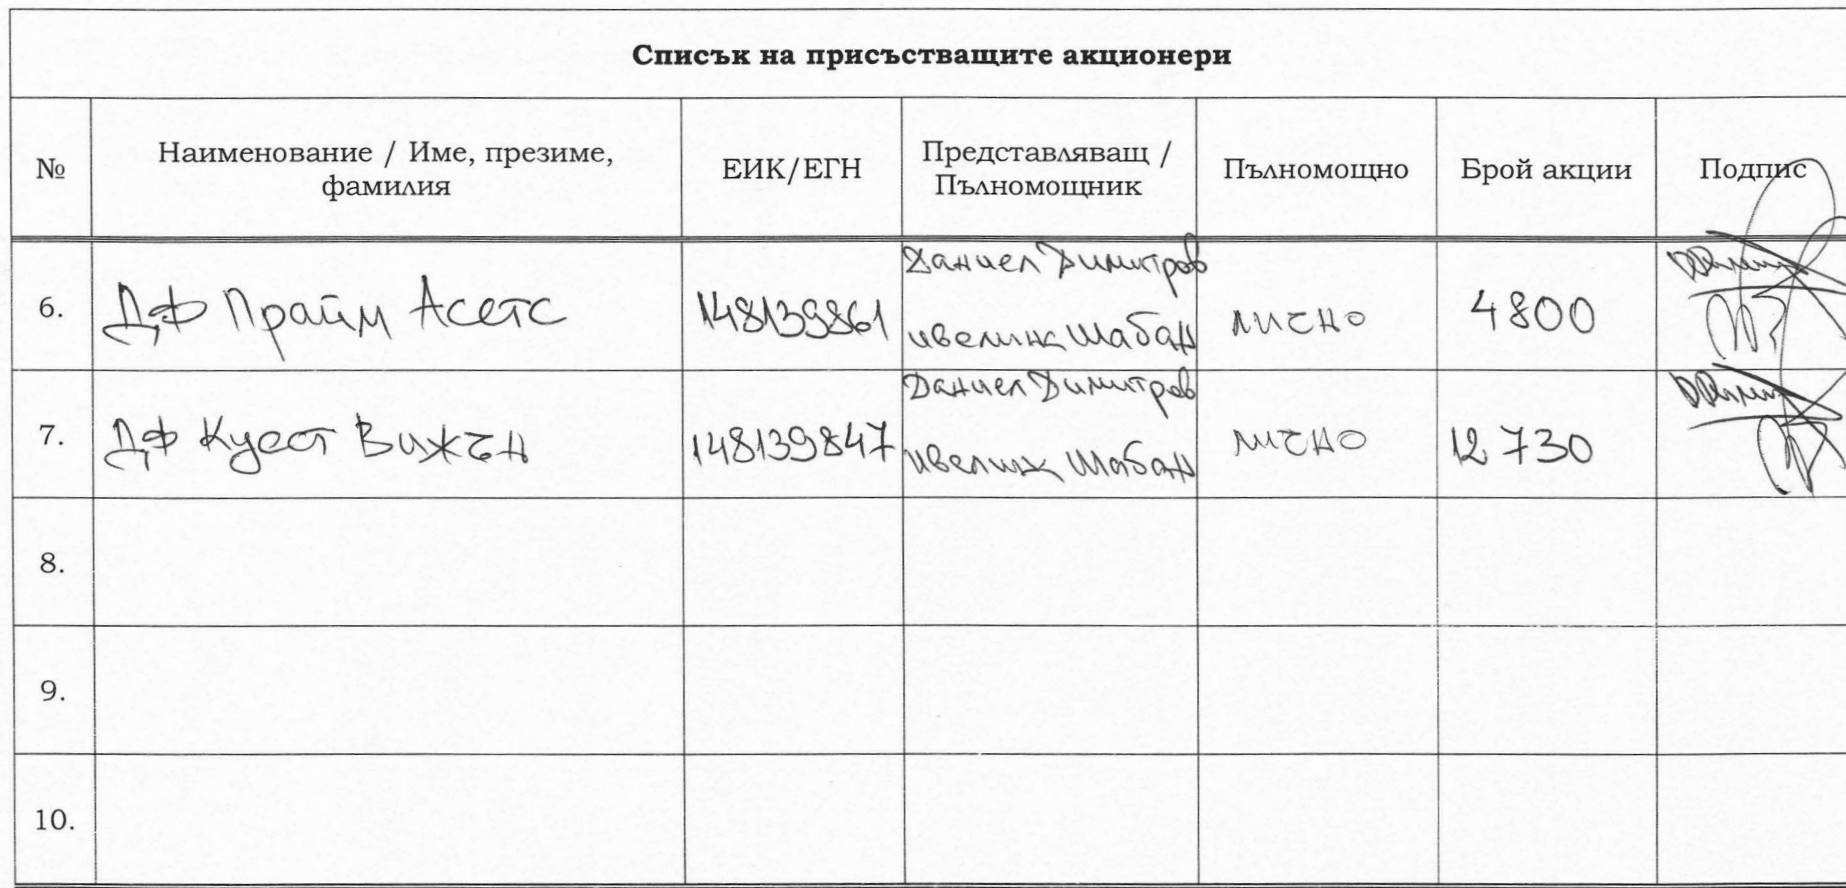 Списък на присъстващите акционери
№ Наименование / Име, презиме, фамилия ЕИК/ЕГН Представляващ / Пълномощник Пълномощно Брой акции Подпис
6. ДФ Прайм Асетс 148139861 Даниел Димитров ивелина Шабан лично 4800
7. ДФ Куест Вижън 148139847 Даниел Димитров ивелина Шабан лично 12 730
8.
9.
10.